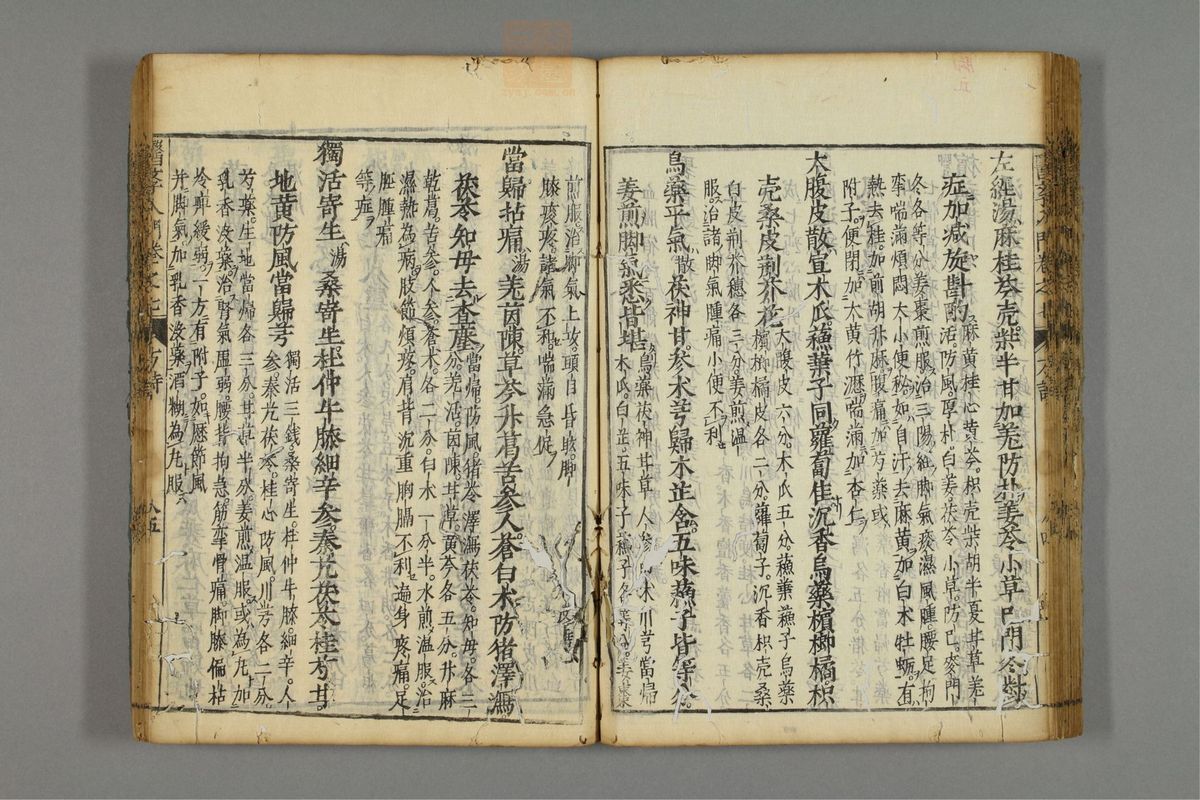 左經湯麻桂芩壳柴半甘加羌防芷羊苓小草己門冬對
症加减旋斟酌麻黄桂心黄芩枳壳柴胡半夏甘草羌
活防風厚朴白姜茯苓小草防已麥門
冬各等分姜棗煎服治三陽經脚氣痰濕風腫腰足拘
攣喘滿煩悶大小便秘如自汗去麻黄加白术牡蛎有
熱去桂加前胡升麻腹痛加芍藥或
附子便閉加大黄竹瀝喘滿加杏仁
大腹皮散宣木瓜蘓葉子同蘿蔔佳沉香烏藥檳榔橘枳
壳桑皮荆芥花大腹皮六分木瓜五分蘓葉蘓子烏藥
檳榔橘皮各二分蘿蔔子沉香枳壳桑
白皮荆芥穗各三分姜煎温
服治諸脚氣腫痛小便不利
烏藥平氣散茯神甘參术芎歸木芷含五味蘓子皆等分
姜煎脚氣悉皆坫烏藥茯神甘草人參白术川芎當歸
木瓜白芷五味子蘓子各等分姜棗
煎服治脚氣上攻頭目昏眩脚
膝痠疼諸氣不和喘滿急促
當歸拈痛湯羌茵陳草芩升葛苦參人蒼白术防猪澤瀉
茯苓知母去查塵當歸防風猪苓澤瀉茯苓知母各三
分羌活茵陳甘草黄芩各五分升麻
乾葛苦參人參蒼术各二分白术一分半水煎温服治
濕熱為病肢節煩疼肩背沉重胸膈不利遍身疼痛足
脛腫痛
等症
獨活寄生湯桑寄生杜仲牛膝細辛參秦艽茯苓桂方甘
地黄防風當歸芎獨活三錢桑寄生杜仲牛膝細辛人
參秦艽茯苓桂心防風川芎各二分
芍藥生地當歸各三分甘草半分姜煎温服或為丸加
乳香没藥治腎氣虚弱腰背拘急筋攣骨痛脚膝偏枯
冷痺緩弱一方有附子如歴節風
并脚氣加乳香没藥酒糊為丸服